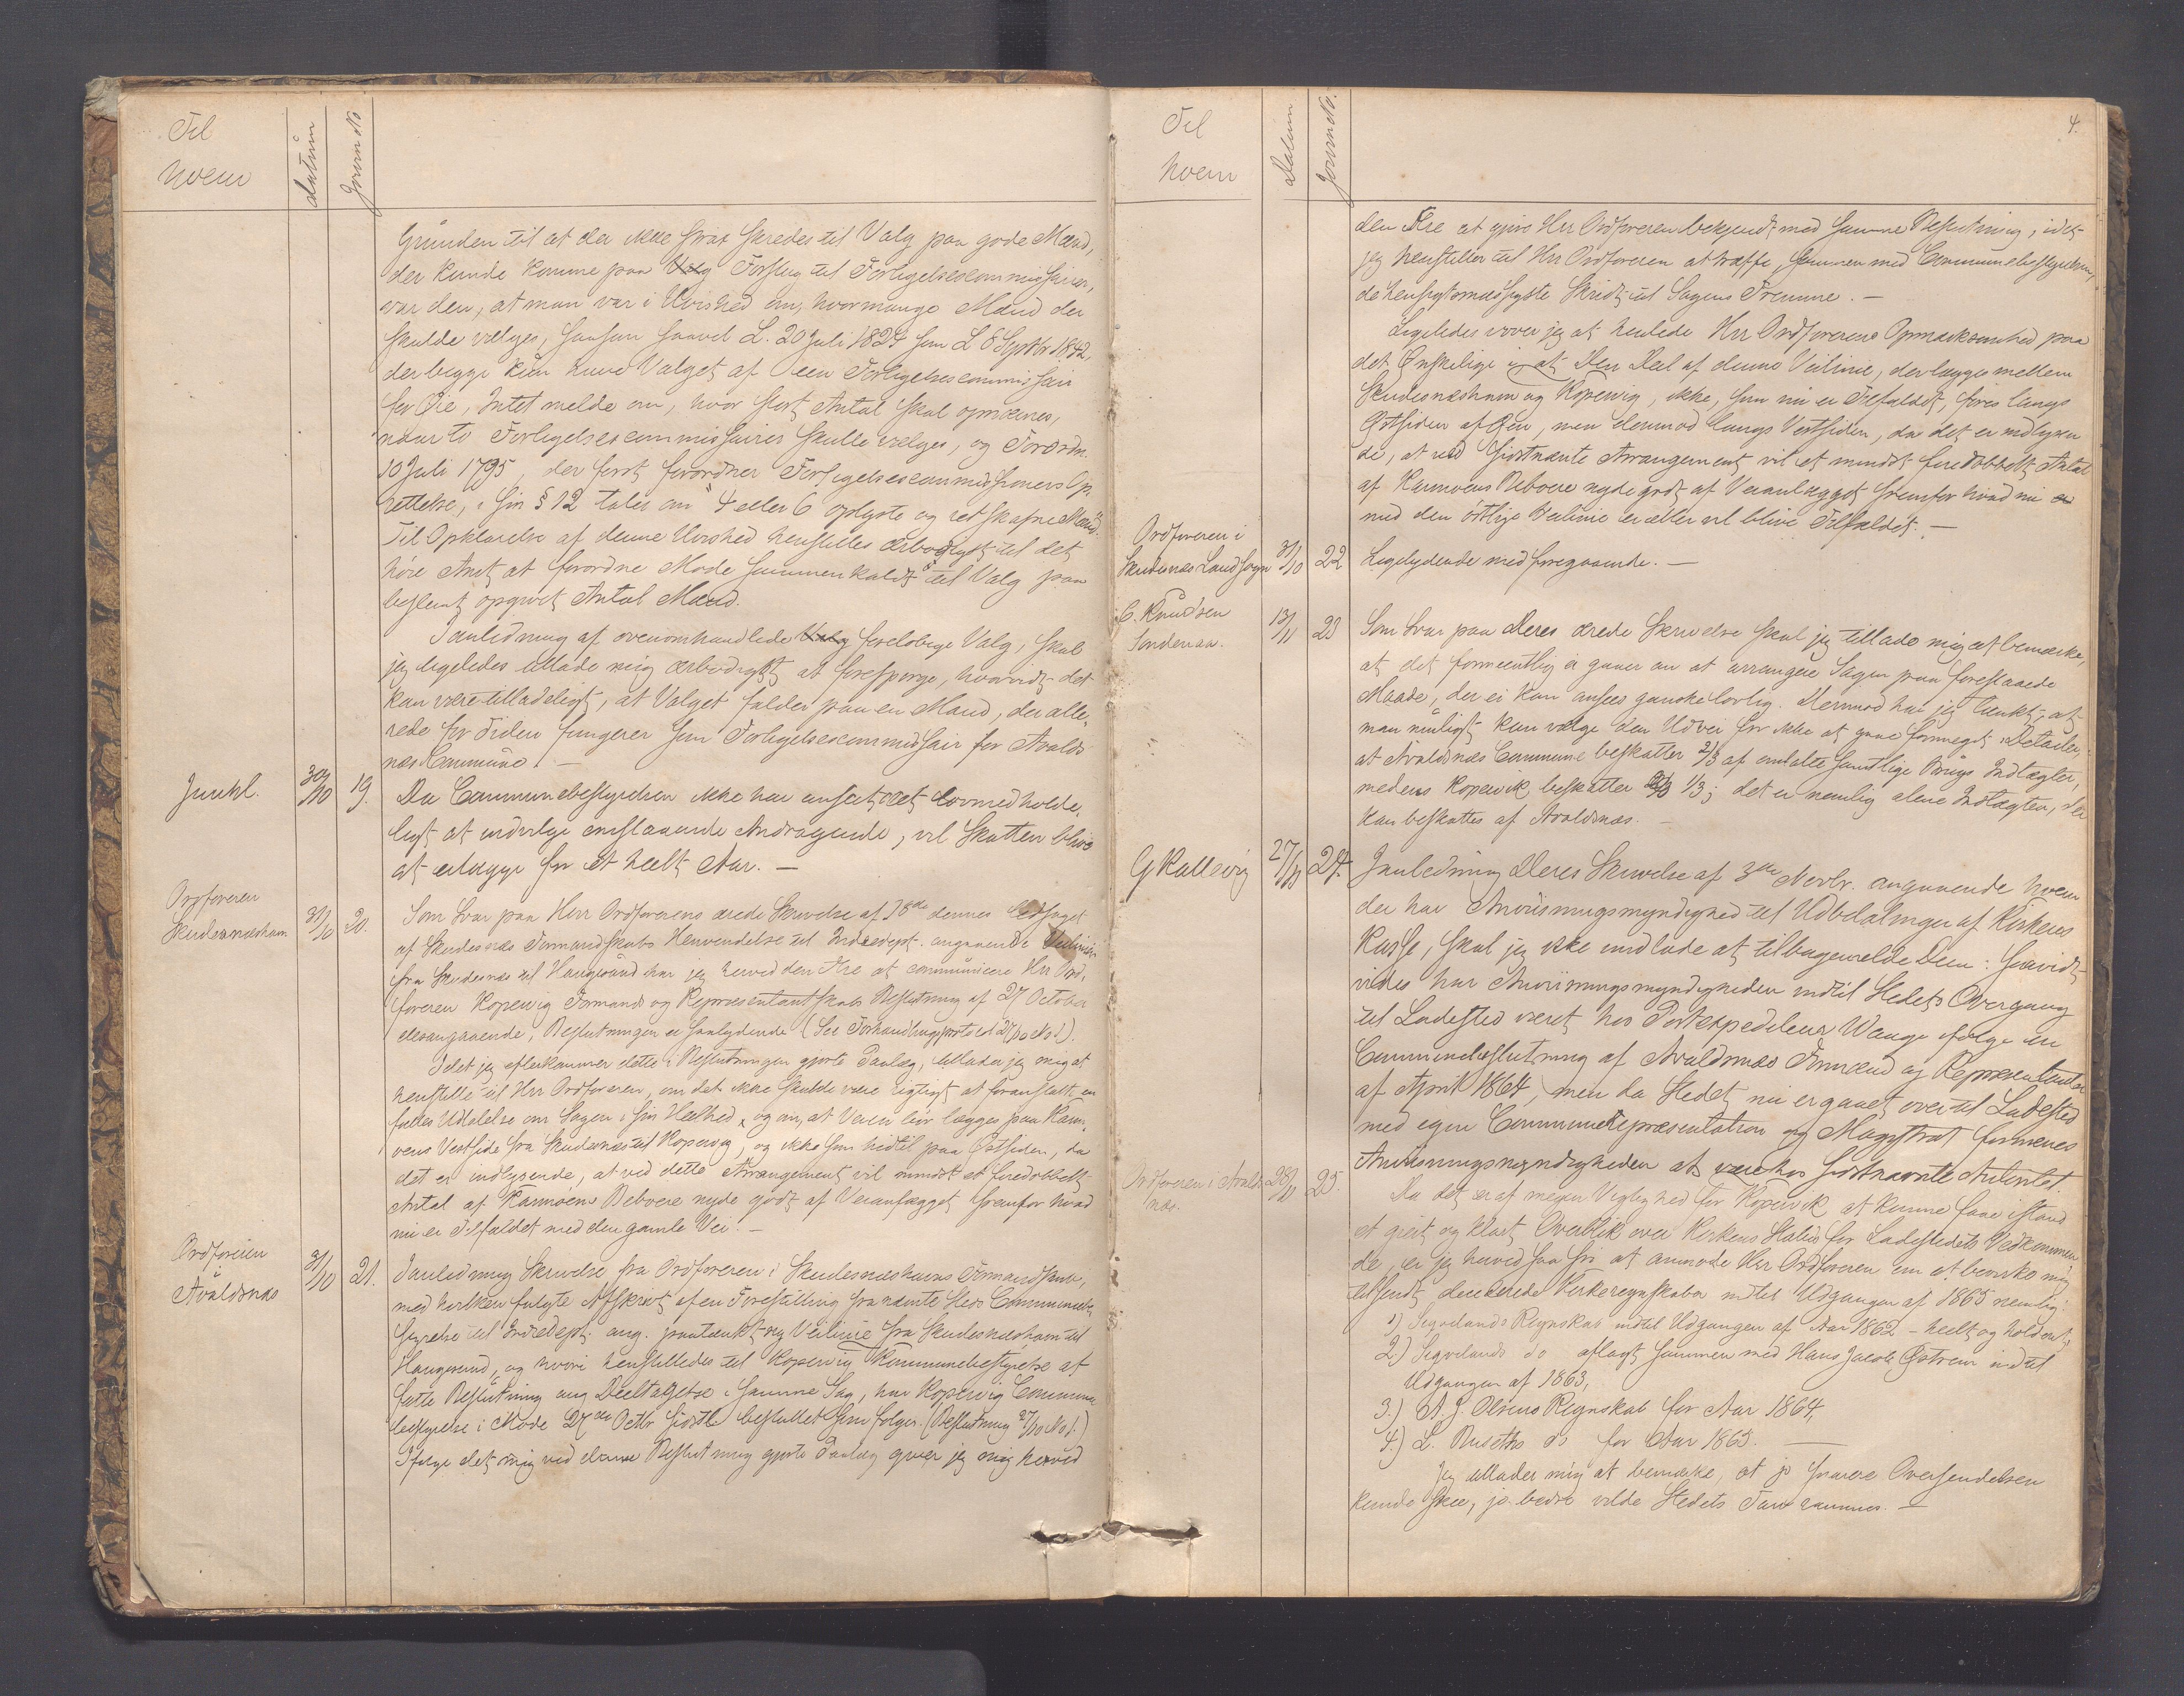 Til
hvem
datum
Journ No
Grunden til at der ikke strax skredes til Valg paa gode Mænd,
der kunde komme paa Valg Forslag til Forligelsescommissairer,
var den, at man var i Uvished om, hvormange Mænd der
skulde vælges, saasom saavel L. 20 Juli 1824 som L 8 Septbr 1842,
der begge kun have Valget af een Forligelsescommissair
for Øie, Intet melde om, hvor stort Antal skal opnævnes,
naar to Forligelsescommissairer skulle vælges, og Forordn.
10 Juli 1795, der først forordner Forligelsescommissioners Op-
rettelse, i sin § 12 taler om "4 eller 6 oplyste og retskafne Mænd".
Til Opklarelse af denne Uvished henstilles ærbødigst til det
høie Amt at forordne Møde sammenkaldt til Valg paa
bestemt opgivet Antal Mænd.
I anledning af ovenomhandlede Valg foreløbige Valg, skal
jeg ligeledes tillade mig ærbødigst at forespørge, hvorvidt det
kan være tilladeligt, at Valget falder paa en Mand, der alle-
rede for Tiden fungerer som Forligelsescommissair for Avalds
næs Commune. —
Juuhl.
30/10
19.
Da Communebestyrelsen ikke har anseet det lovmedholde-
ligt at indvilge omstaaende Andragende, vil Skatten blive
at erlægge for et heelt Aar. —
Ordføreren
Skudesnæshavn
31/10
20.
Som Svar paa Herr Ordførerens ærede Skrivelse af 18de dennes ledsaget
af Skudesnæs Formandskabs Henvendelse til Indredept. angaaende Veilinien
fra Skudesnæs til Haugesund har jeg herved den Ære at communicere Hr Ord-
føreren Kopervig Formands og Repræsentantskabs Beslutning af 27 October
desangaaende, Beslutningen er saalydende (See Forhandlingsprotocol 27/10 No 1).
Idet jeg efterkommer dette i Beslutningen gjorte Paalæg, tillader jeg mig at
henstille til Hr Ordføreren, om det ikke skulde være rigtigst at foranstalte en
fælles Udtalelse om Sagen i sin Helhed, og om, at Veien bør lægges paa Karm-
øens Vestside fra Skudesnæs til Kopervig, og ikke som hidtil paa Østsiden, da
det er indlysende, at ved dette Arrangement vil mindst et firedobbelt
Antal af Karmøens Beboere nyde godt af Veianlægget fremfor hvad
nu er Tilfældet med den gamle Vei. —
Ordføreren
Avaldsnæs
31/10
21.
I anledning Skrivelse fra Ordføreren i Skudesnæshavns Formandskab,
med hvilken fulgte Afskrivt af en Forestilling fra nævnte Steds Communebe-
styrelse til Indredept. ang. paatænkt ny Veilinie fra Skudesnæshavn til
Haugesund, og hvori henstilledes til Kopervig Kommunebestyrelse at
fatte Beslutning ang Deeltagelse i samme Sag, har Kopervig Commune
bestyrelse i Møde 27de Octbr sidstl. besluttet som følger. (Beslutning 27/10 No 1.)
Ifølge det mig ved denne Beslutning gjorte Paalæg giver jeg mig herved
Til
hvem
Datum
Journ No.
4.
den Ære at gjøre Hr Ordføreren bekjendt med samme Beslutning, idet
jeg henstiller til Hr Ordføreren at træffe, sammen med Communebestyrelsen,
de hensigtsmæssigste Skridt til Sagens Fremme. —
Ligeledes vover jeg at henlede Hr Ordførerens Opmærksomhed paa
det Ønskelige i at Den Deel af denne Veilinie, der lægges mellem
Skudesnæshavn og Kopervig, ikke, som nu er Tilfældet, føres langs
Østsiden af Øen, men derimod langs Vestsiden, da det er indlysen
de, at ved sidstnævnte Arrangement vil et mindst firedobbelt Antal
af Karmøens Beboere nyde godt af Veianlægget fremfor hvad nu er
med den østlige Veilinie er eller vil blive Tilfældet. —
Ordføreren i
Skudesnæs Landsogn
31/10
22
Ligelydende med foregaaende. —
C. Knudsen
Søndenaa.
13/11
23
Som Svar paa Deres ærede Skrivelse skal jeg tillade mig at bemærke,
at det formeentlig ei gaaer an at arrangere Sagen paa foreslaaede
Maade, der ei kan ansees ganske lovlig. Derimod har jeg tænkt, at
man muligt kan vælge den Udvei for ikke at gaae formeget i Detailer,
at Avaldsnæs Commune beskatter 2/3 af omtalte samtlige Brugs Indtægter,
medens Kopervik beskatter 2/3 1/3; det er nemlig alene Indtægten, der
kan beskattes af Avaldsnæs. —
G Kallevig
27/11
24.
I anledning Deres Skrivelse af 3die Novbr. angaaende hvem
der har Anviisningsmyndighed til Udbetalinger af Kirkens
Kasse, skal jeg ikke undlade at tilbagemelde Dem: Saavidt
vides har Anviisningsmyndigheden indtil Stedets Overgang
til Ladested været hos Postexpediteur Wange ifølge en
Communebeslutning af Avaldsnæs Formænd og Repræsentanter
af April 1864, men da Stedet nu er gaaet over til Ladested
med egen Communerepræsentation og Magistrat formenes
Anviisningsmyndigheden at være hos sidstnævnte Autoritet.
Ordføreren i Avalds
næs.
28/11
25.
Da det er af megen Vigtighed for Kopervik at kunne faae istand
et greit og klart Overblik over Kirkens Status for Ladestedets Vedkommen
de, er jeg herved saa fri at anmode Hr Ordføreren om at bevirke mig
tilsendt deciderede Kirkeregnskaber indtil Udgangen af 1865 nemlig:
1) Sigvelands Regnskab indtil Udgangen af Aar 1862 — heelt og holdent,
2.) Sigvelands do aflagt sammen med Hans Jacob Østrem indtil
Udgangen af 1863,
3.) A. J. Olsens Regnskab for Aar 1864,
4.) L. Ruseths do for Aar 1865. —
Jeg tillader mig at bemærke, at jo snarere Oversendelsen
kunde skee, jo bedre vilde Stedets Tarv varnes. —